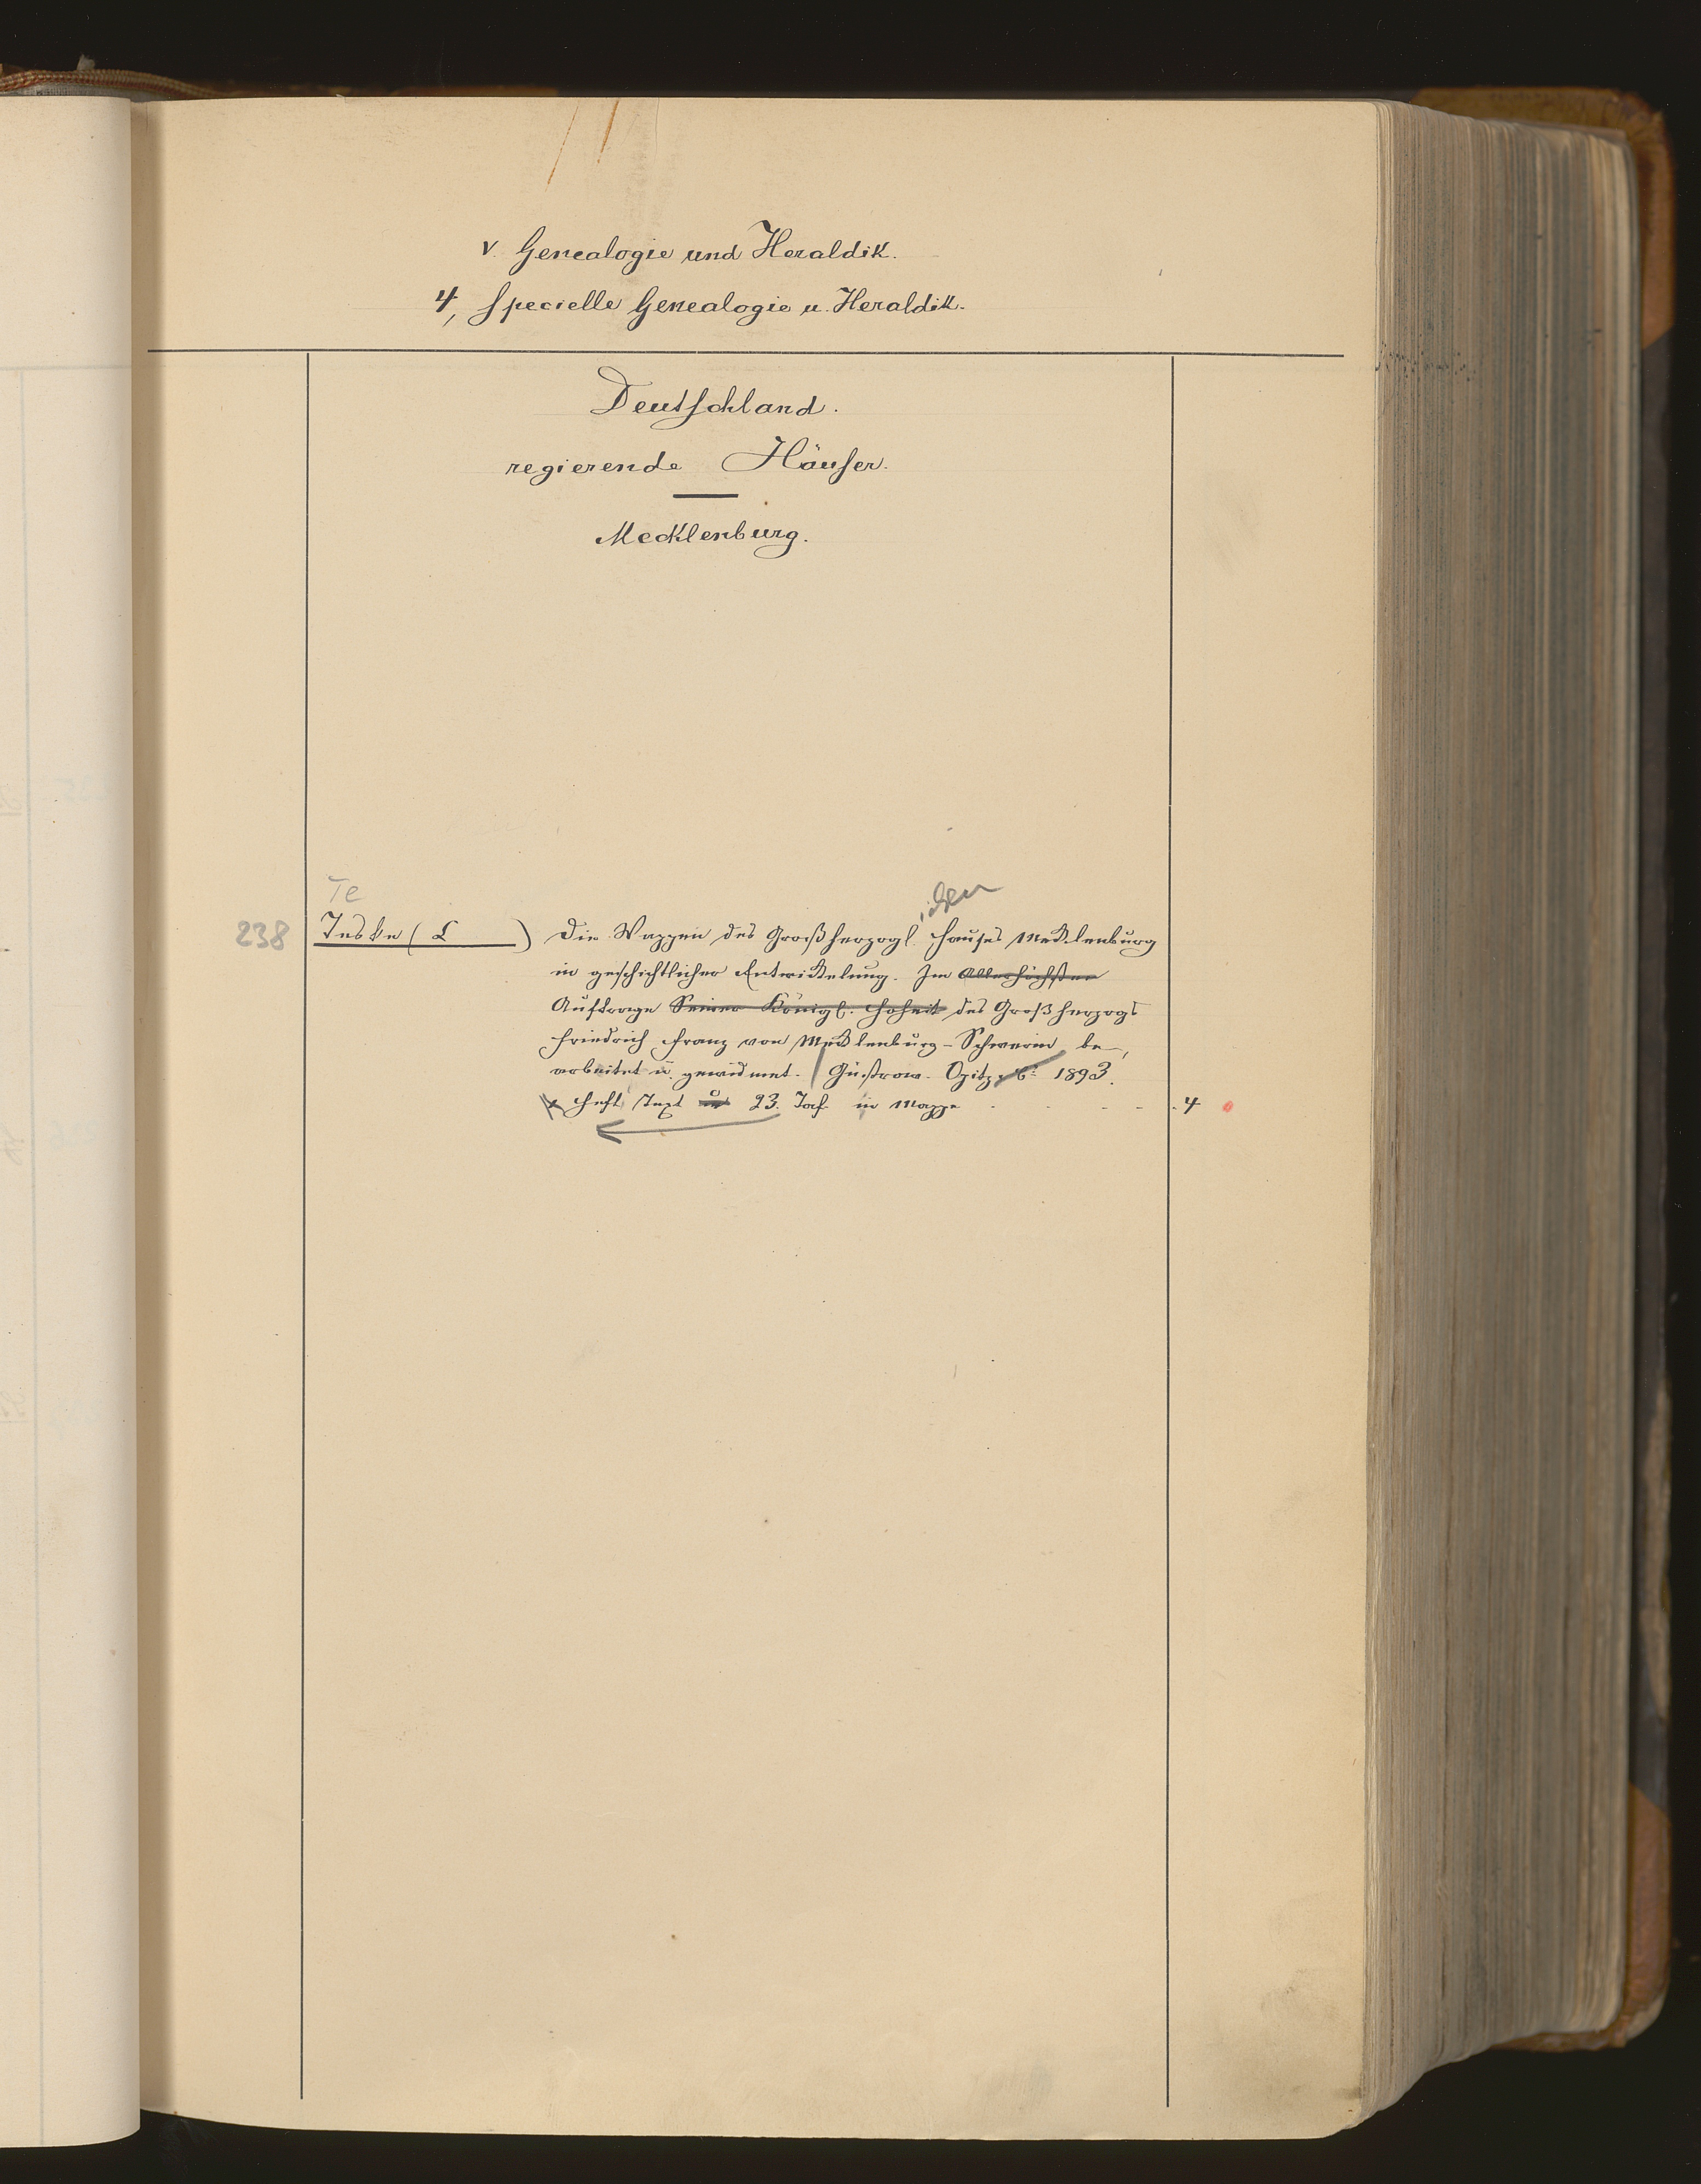 V. Genealogie und Heraldik.
4, Specielle Genealogie u. Heraldik.
Deutschland.
regierende Häuser.
Mecklenburg.
Te
ichen
238 Teske (L ) Die Wappen des Großherzogl. Hauses Mecklenburg
in geschichtlicher Entwickelung. Im Allerhöchsten
Auftrage Seiner Königl. Hoheit des Großherzogs
Friedrich Franz von Mecklenburg-Schwerin be,
arbeitet u. gewidmet. Güstrow. Opitz & Cº 1893.
Heft Text u 23. Taf. in Mappe - - - - 4